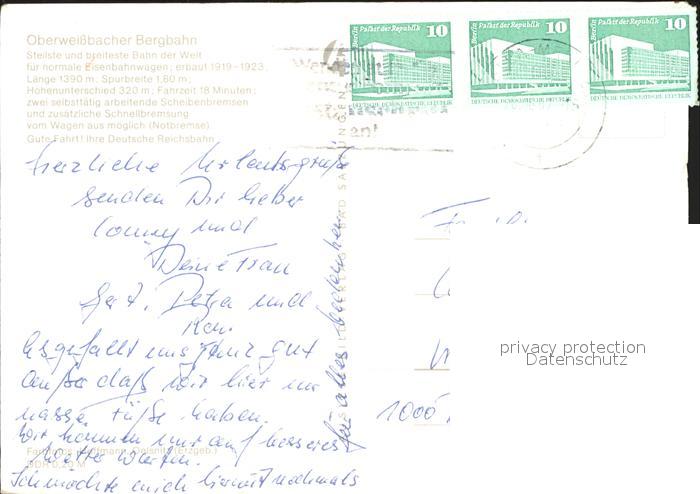 Oberweißbacher Bergbahn
Steilste und breiteste Bahn der Welt
für normale Eisenbahnwagen; erbaut 1919-1923;
Länge 1390 m; Spurbreite 1,80 m;
Höhenunterschied 320 m; Fahrzeit 18 Minuten;
zwei selbsttätig arbeitende Scheibenbremsen
und zusätzliche Schnellbremsung
vom Wagen aus möglich (Notbremse).
Gute Fahrt! Ihre Deutsche Reichsbahn
Berlin Palast der Republik 10
DEUTSCHE DEMOKRATISCHE REPUBLIK
Berlin Palast der Republik 10
DEUTSCHE DEMOKRATISCHE REPUBLIK
Berlin Palast der Republik 10
DEUTSCHE DEMOKRATISCHE REPUBLIK
herzliche Urlaubsgrüße
senden Dir lieber
Conny und
Deine Frau
Petra und
Es gefällt uns ganz gut
außer daß wir hier nur
nasse Füße haben.
Wir können nur auf besseres
Wetter warten.
Ich möchte mich hiermit nochmals
für alles bedanken
1000
DDR 0,20 M
privacy protection
Datenschutz